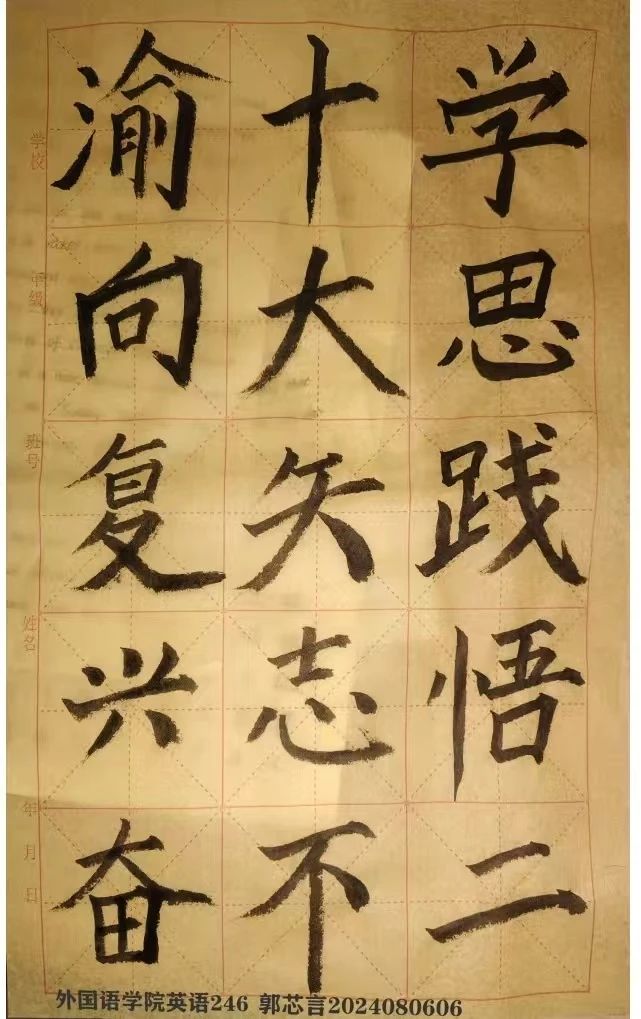 学思践悟二
十大矢志不
渝向复兴奋
学校
年级
班号
姓名
年 月 日
外国语学院英语246 郭芯言2024080606